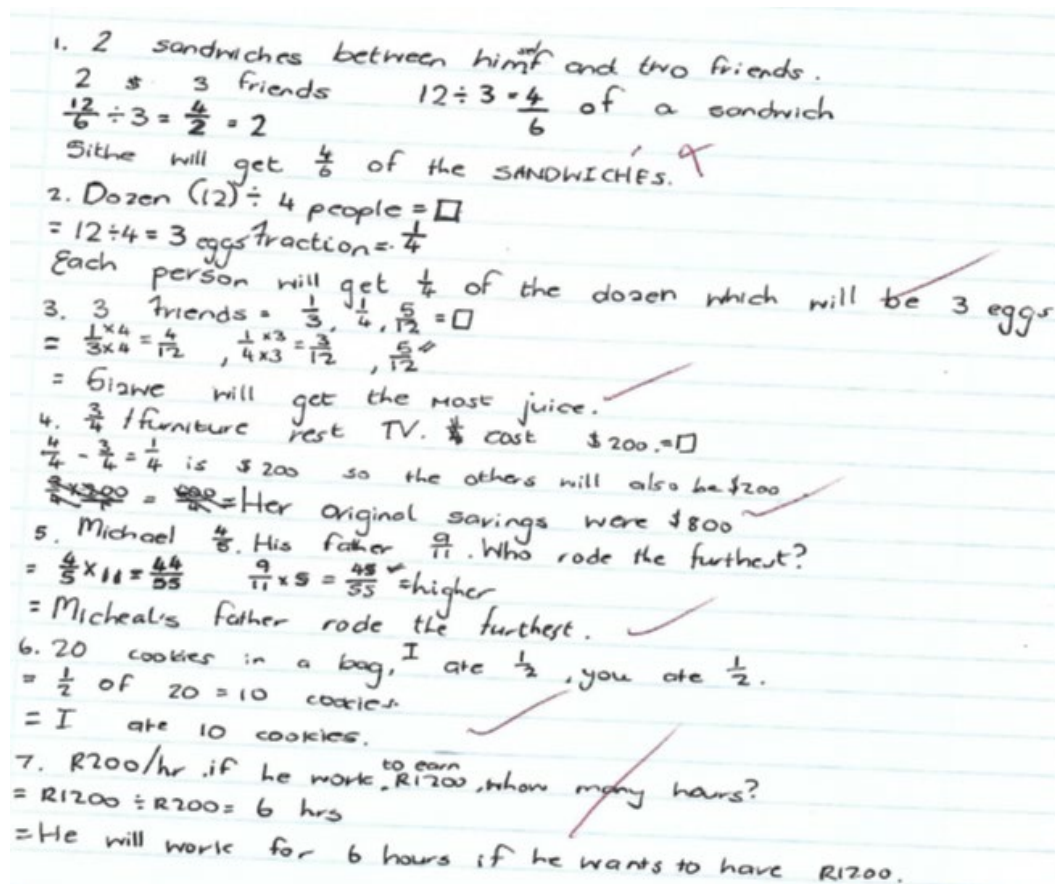 1. 2 sandwiches between himself and two friends.
2 3 friends 12÷3=4/6 of a sandwich
12/6 ÷ 3 = 4/2 = 2
Sithe will get 4/6 of the SANDWICHES.
2. Dozen (12) ÷ 4 people = □
= 12÷4 = 3 eggs fraction = 1/4
Each person will get 1/4 of the dozen which will be 3 eggs
3. 3 friends = 1/3, 1/4, 5/12 = □
= 1/3 ×4/×4 = 4/12, 1/4 ×3/×3 = 3/12, 5/12
= will get the most juice.
4. 3/4 furniture rest TV. cost $200.=□
4/4 - 3/4 = 1/4 is $200 so the others will also be $200
= Her original savings were $800
5. Michael 4/5. His father 9/11. Who rode the furthest?
= 4/5 × 11 = 44/55 9/11 × 5 = 45/55 =higher
= Micheal's father rode the furthest.
6. 20 cookies in a bag, I ate 1/2, you ate 1/2.
= 1/2 of 20 = 10 cookies.
= I ate 10 cookies.
7. R200/hr. if he work to earn R1200, how many hours?
= R1200 ÷ R200 = 6 hrs
= He will work for 6 hours if he wants to have R1200.